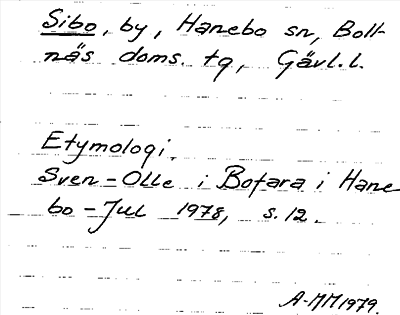 Sibo, by, Hanebo sn, Boll-
näs doms. tg, Gävl.l.
Etymologi.
Sven-Olle i Bofara i Hane
bo-Jul 1978, s.12.
A-MM1979.